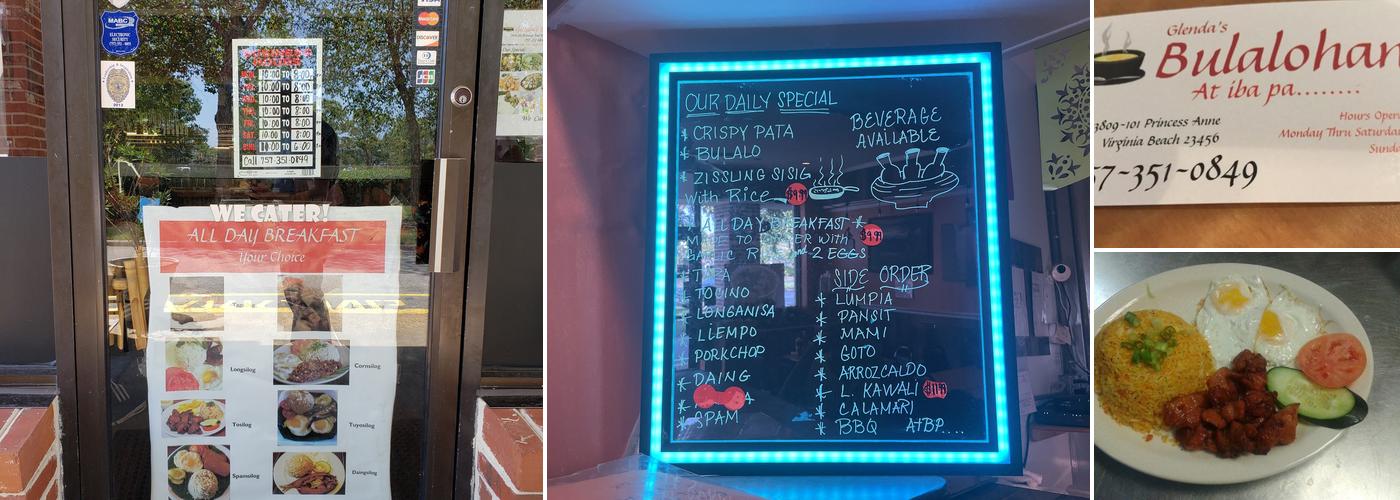 MABC
ELECTRONIC
SECURITY
2012
VISA
MasterCard
DISCOVER
JCB
BUSINESS
HOURS
10:00 TO 8:00
10:00 TO 8:00
10:00 TO 8:00
10:00 TO 8:00
FRI. 10:00 TO 8:00
SAT. 10:00 TO 8:00
SUN. 10:00 TO 6:00
Call 757-351-0849
WE CATER!
ALL DAY BREAKFAST
Your Choice
Longsilog
Cornsilog
Tosilog
Tuyosilog
Spamsilog
Daingsilog
OUR DAILY SPECIAL
* CRISPY PATA
* BULALO
* ZISSLING SISIG
with Rice $9.99
* ALL DAY BREAKFAST *
MADE TO ORDER with $9.99
GARLIC RICE and 2 EGGS
TAPA
TOCINO
LONGANISA
LIEMPO
PORKCHOP
* DAING
* SPAM
BEVERAGE
AVAILABLE
SIDE ORDER
* LUMPIA
* PANSIT
* MAMI
* GOTO
* ARROZCALDO
* L. KAWALI $11.99
* CALAMARI
* BBQ ATBP....
Glenda's
Bulalohan
At iba pa........
3809-101 Princess Anne
Virginia Beach 23456
57-351-0849
Hours Open
Monday Thru Saturda
Sunda